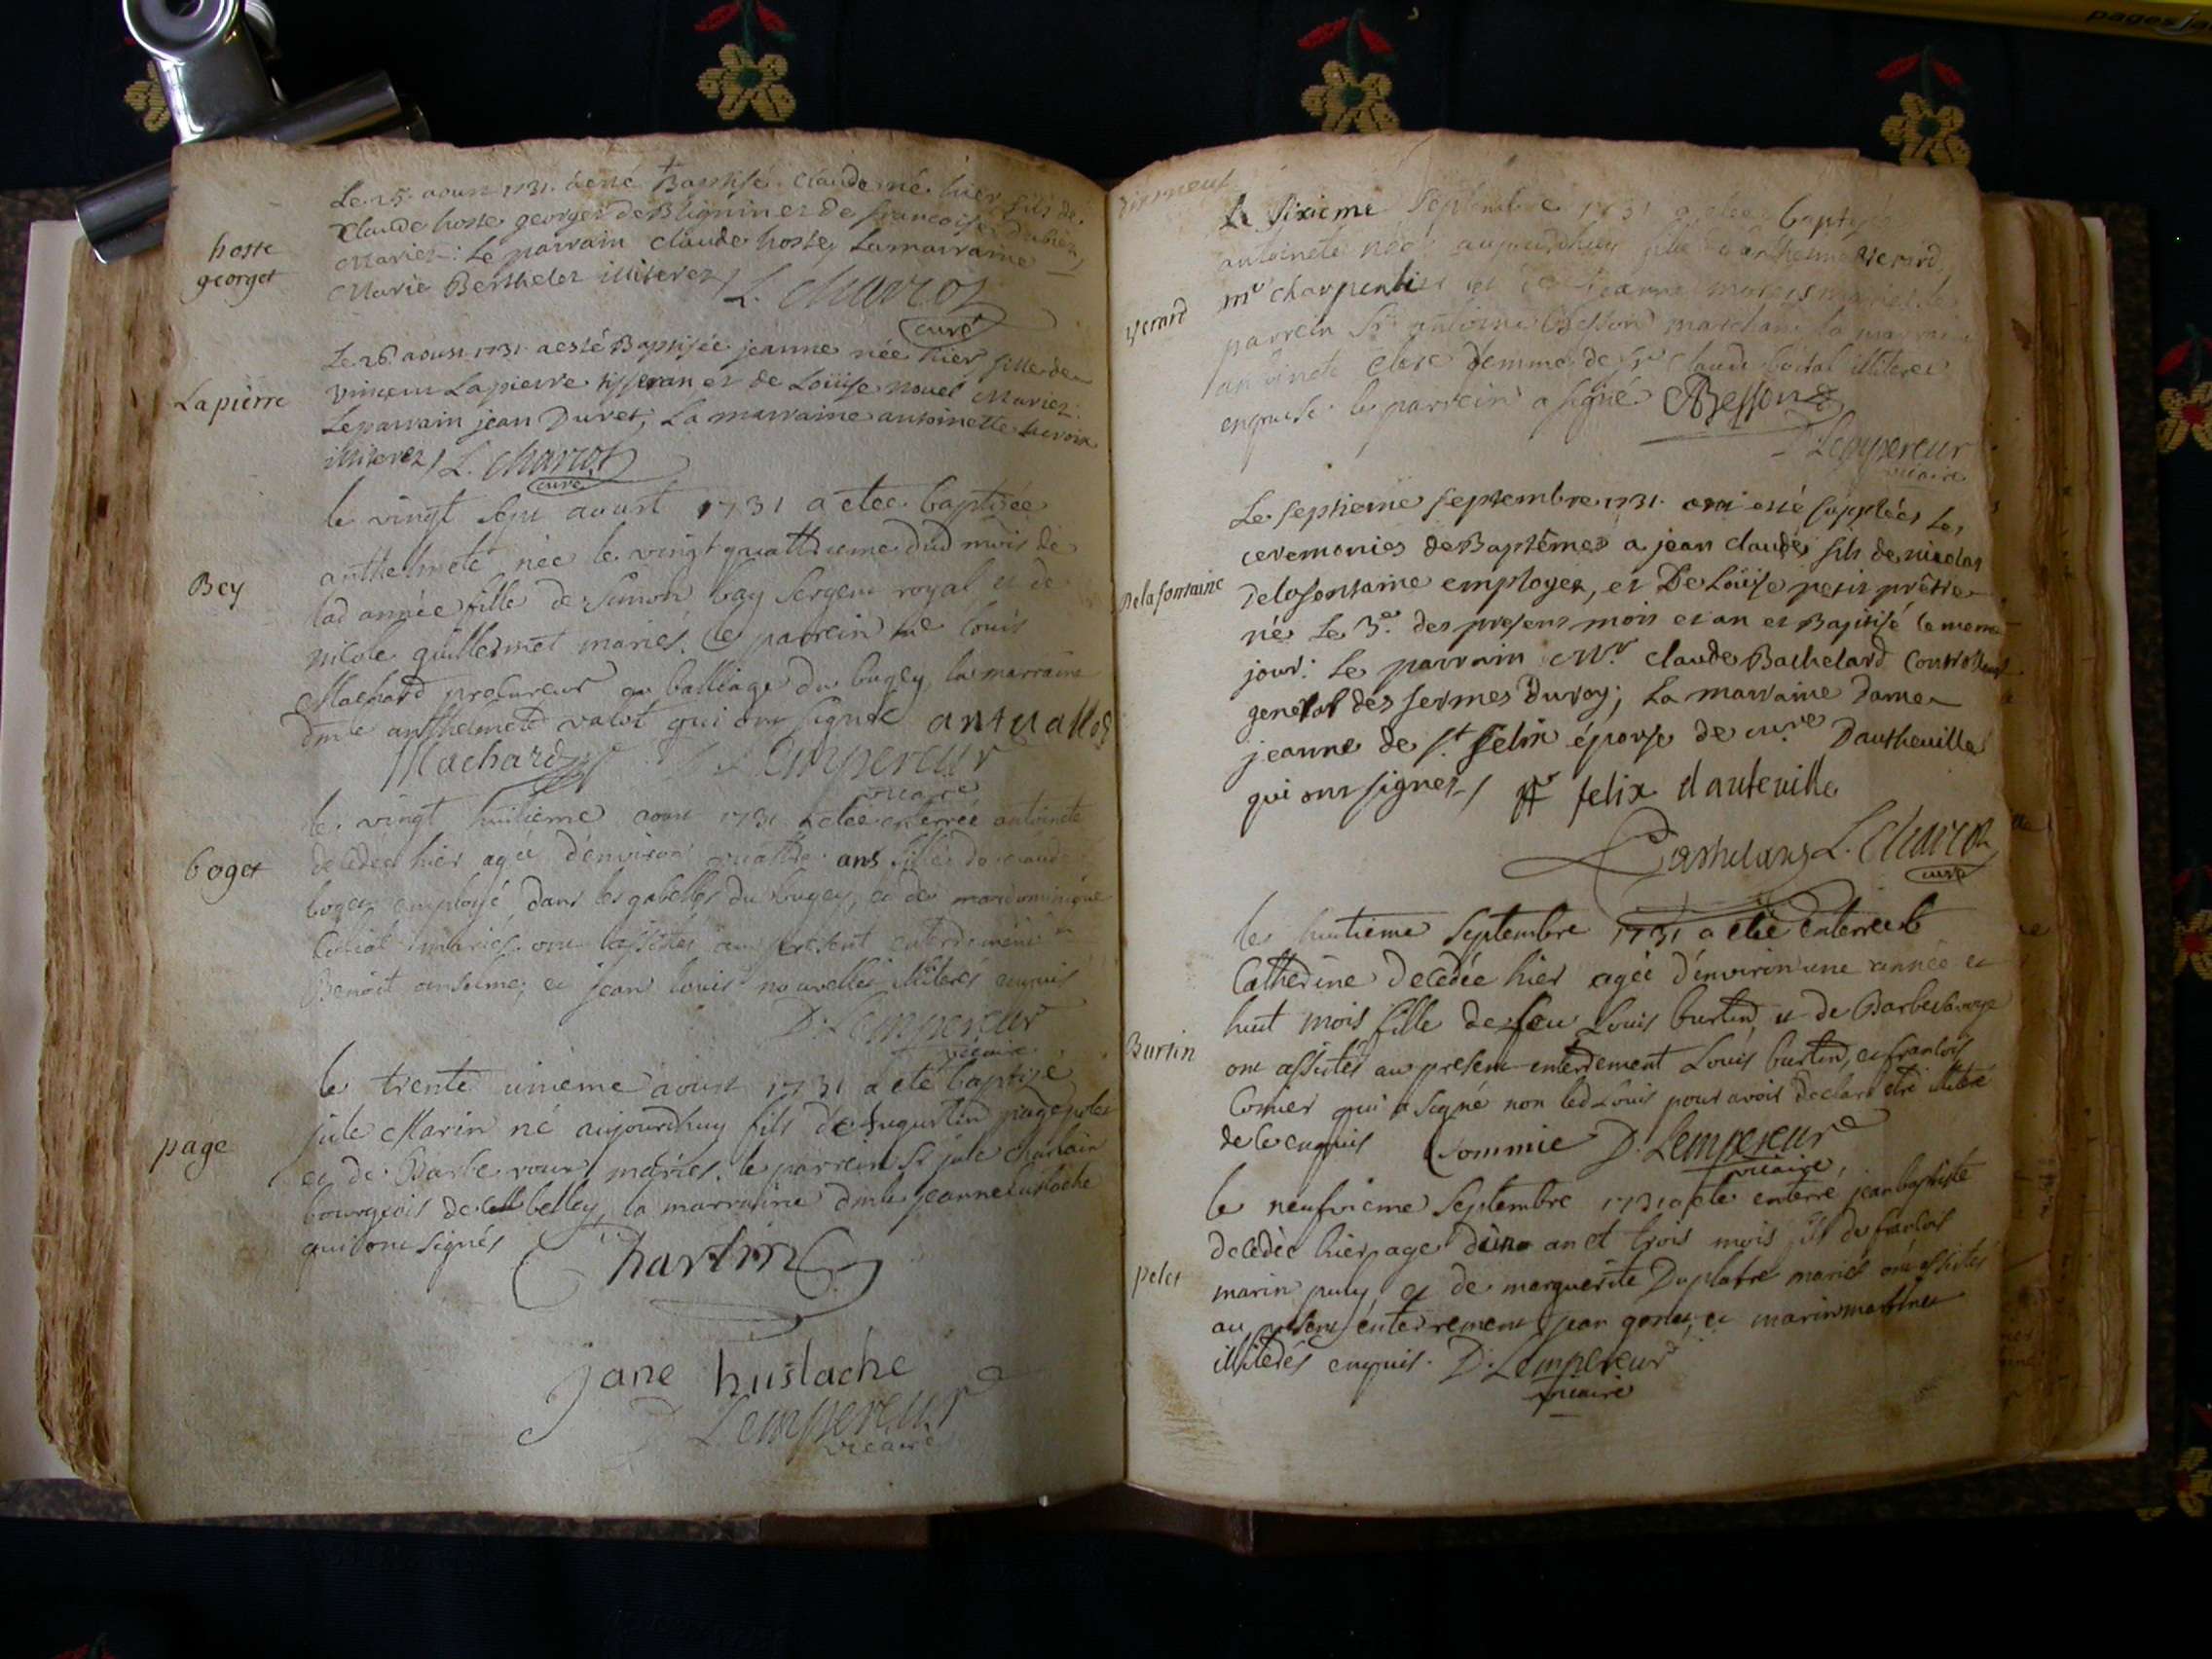 pages ja
Le 25. aoust 1731. a esté Baptisé claude né hier fils de
Claude hoste georget de Blignin et de francoise
hoste
georget
Mariez: Le parrain claude hoste, La marraine
Marie Berthelet illiterez / L. charcot
curé
Le 26 aoust 1731. a esté Baptisée jeanne née hier, fille de
Lapierre
Vincent Lapierre tisseran et de Loüise nouel Mariez:
Le parrain jean Duret; La marraine antoinette Lacroix
illiterez / L. charcot
curé
le vingt sept aoust 1731 a etee baptisée
anthelmete née le vingt quattrieme dud mois de
Bey
lad année fille de Simon bay sergent royal et de
nicole guillermet mariés. le parrein me louis
Machard procureur au balliage du bugey la marraine
dmle anthelmete valot qui ont signé antuallos
Machard D. Lempereur
vicaire
le vingt huitieme aoust 1731 a etee enterrée antoinete
boget
decedee hier agée d'environ quattre ans fille de claude
boget employé dans les gabelles du bugey, et de
mariés ont assistes au present enterrement
Benoit anselme, et jean louis nouvelles illiterés enquis
D. Lempereur
vicaire
le trente unieme aoust 1731 a eté baptizé
page
jule Marin né aujourdhuy fils de augustin page
et de Barbe roux mariés. le parrein Sr jule
bourgeois de belley, la marraine dmle jeanne eustache
qui ont signés
Jane hustache
D Lempereur
vicaire
dixneuf
Le sixieme Septembre 1731 a etee baptisée
antoinete née aujourdhuy fille d'anthelme verard
verard
mre charpentier et de jeanne mariés le
parrein Sr antoine Besson marchand la marraine
antoinete clerc femme de Sr claude illiteree
enquise le parrein a signé ABesson
D Lempereur
vicaire
Le septieme septembre 1731. ont esté supplées les
ceremonies de Baptêmes a jean claude fils de nicolas
Delafontaine
Delafontaine employez, et De Loüise petit prêtre
né Le 3e. des present mois et an et Baptisé le meme
jour: Le parrain Mr. claude Bachelard Controlleur
general des fermes Du roy; La marraine Dame
jeanne de st. felix épouse de mre Dautheville
qui ont signez / felix dauteville
L. charcot
curé
le huitieme Septembre 1731 a etee enterree
Catherine decedée hier agée d'environ une année et
huit mois fille de feu Louis burtin, et de Barbe
Burtin
ont assistés au present enterrement Louis burtin, et francois
Comer qui a signé non led Louis pour avoir declaré etre illiteré
de ce enquis Commie D. Lempereur
vicaire
le neufvieme Septembre 1731 a eté enterré jean baptiste
decedée hier age d'un an et trois mois fils de francois
pelet
marin et de marguerite Duplatre mariés ont assistés
au present enterrement jean et marin
illiterés enquis. D. Lempereur
vicaire